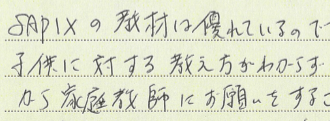 SAPIXの教材は優れているので
子供に対する教え方がわからず
から家庭教師にお願いをするこ